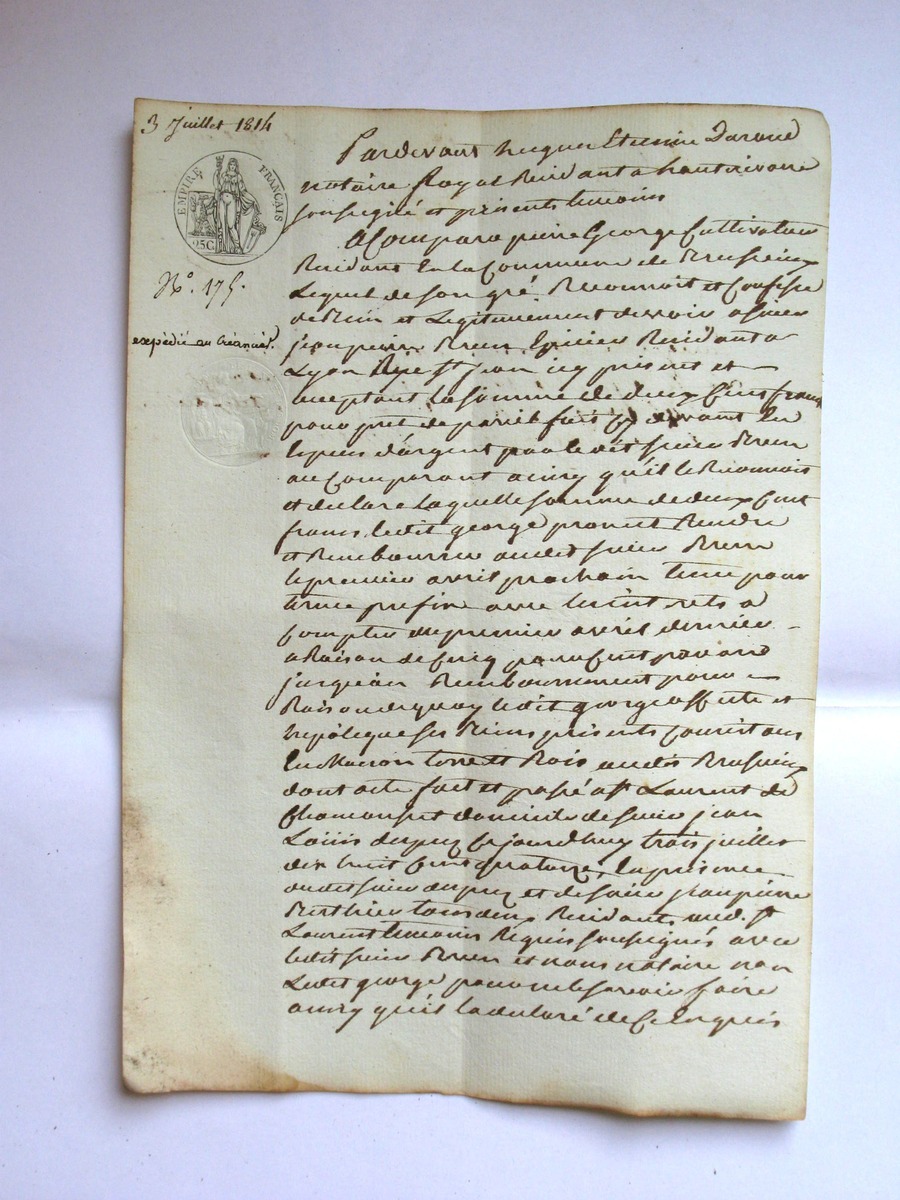 3 Juillet 1814
EMPIRE FRANÇAIS
25C.
N.º 175.
expédié au Créancier.
Pardevant hugues Etienne Daroud
notaire Royal Residant a hauterivoire
soussigné et présents temoins
A Comparu pierre George Cultivateur
Residant En la Commune de Brussieux
Lequel de son gré Reconnoit et Confesse
de Bien et Legitimement devoir a sieur
jean pierre Epicier Residant a
Lyon Rue St jean icy present et
acceptant la somme de deux Cent francs
pour pret de pareil fait Cy devant En
Especes d'argent par le dit sieur
au Comparant ainsy qu'il le Reconnoit
et declare Laquelle somme de deux Cent
francs ledit george promet Rendre
et Rembourser audit sieur
le premier avril prochain terme pour
terme prefix avec Interets a
Compter du premier avril dernier
a Raison de Cinq pour Cent par an
jusqu'au Remboursement pour
Raison de quoy ledit george affecte et
hypoteque ses Biens présents Consistans
En Maison terre et Bois audit Brussieux
dont acte fait et passé a St Laurent de
Chamousset domicile de sieur jean
Louis dupuy Cejourd'huy trois juillet
dix huit Cent quatorze, En presence
dudit sieur dupuy et de sieur jean pierre
Berthier tous deux Residants aud. St
Laurent temoins Requis soussignés avec
ledit sieur et nous notaire non
Ledit george pour ne le sçavoir faire
ainsy qu'il la declaré de Ce Enquis